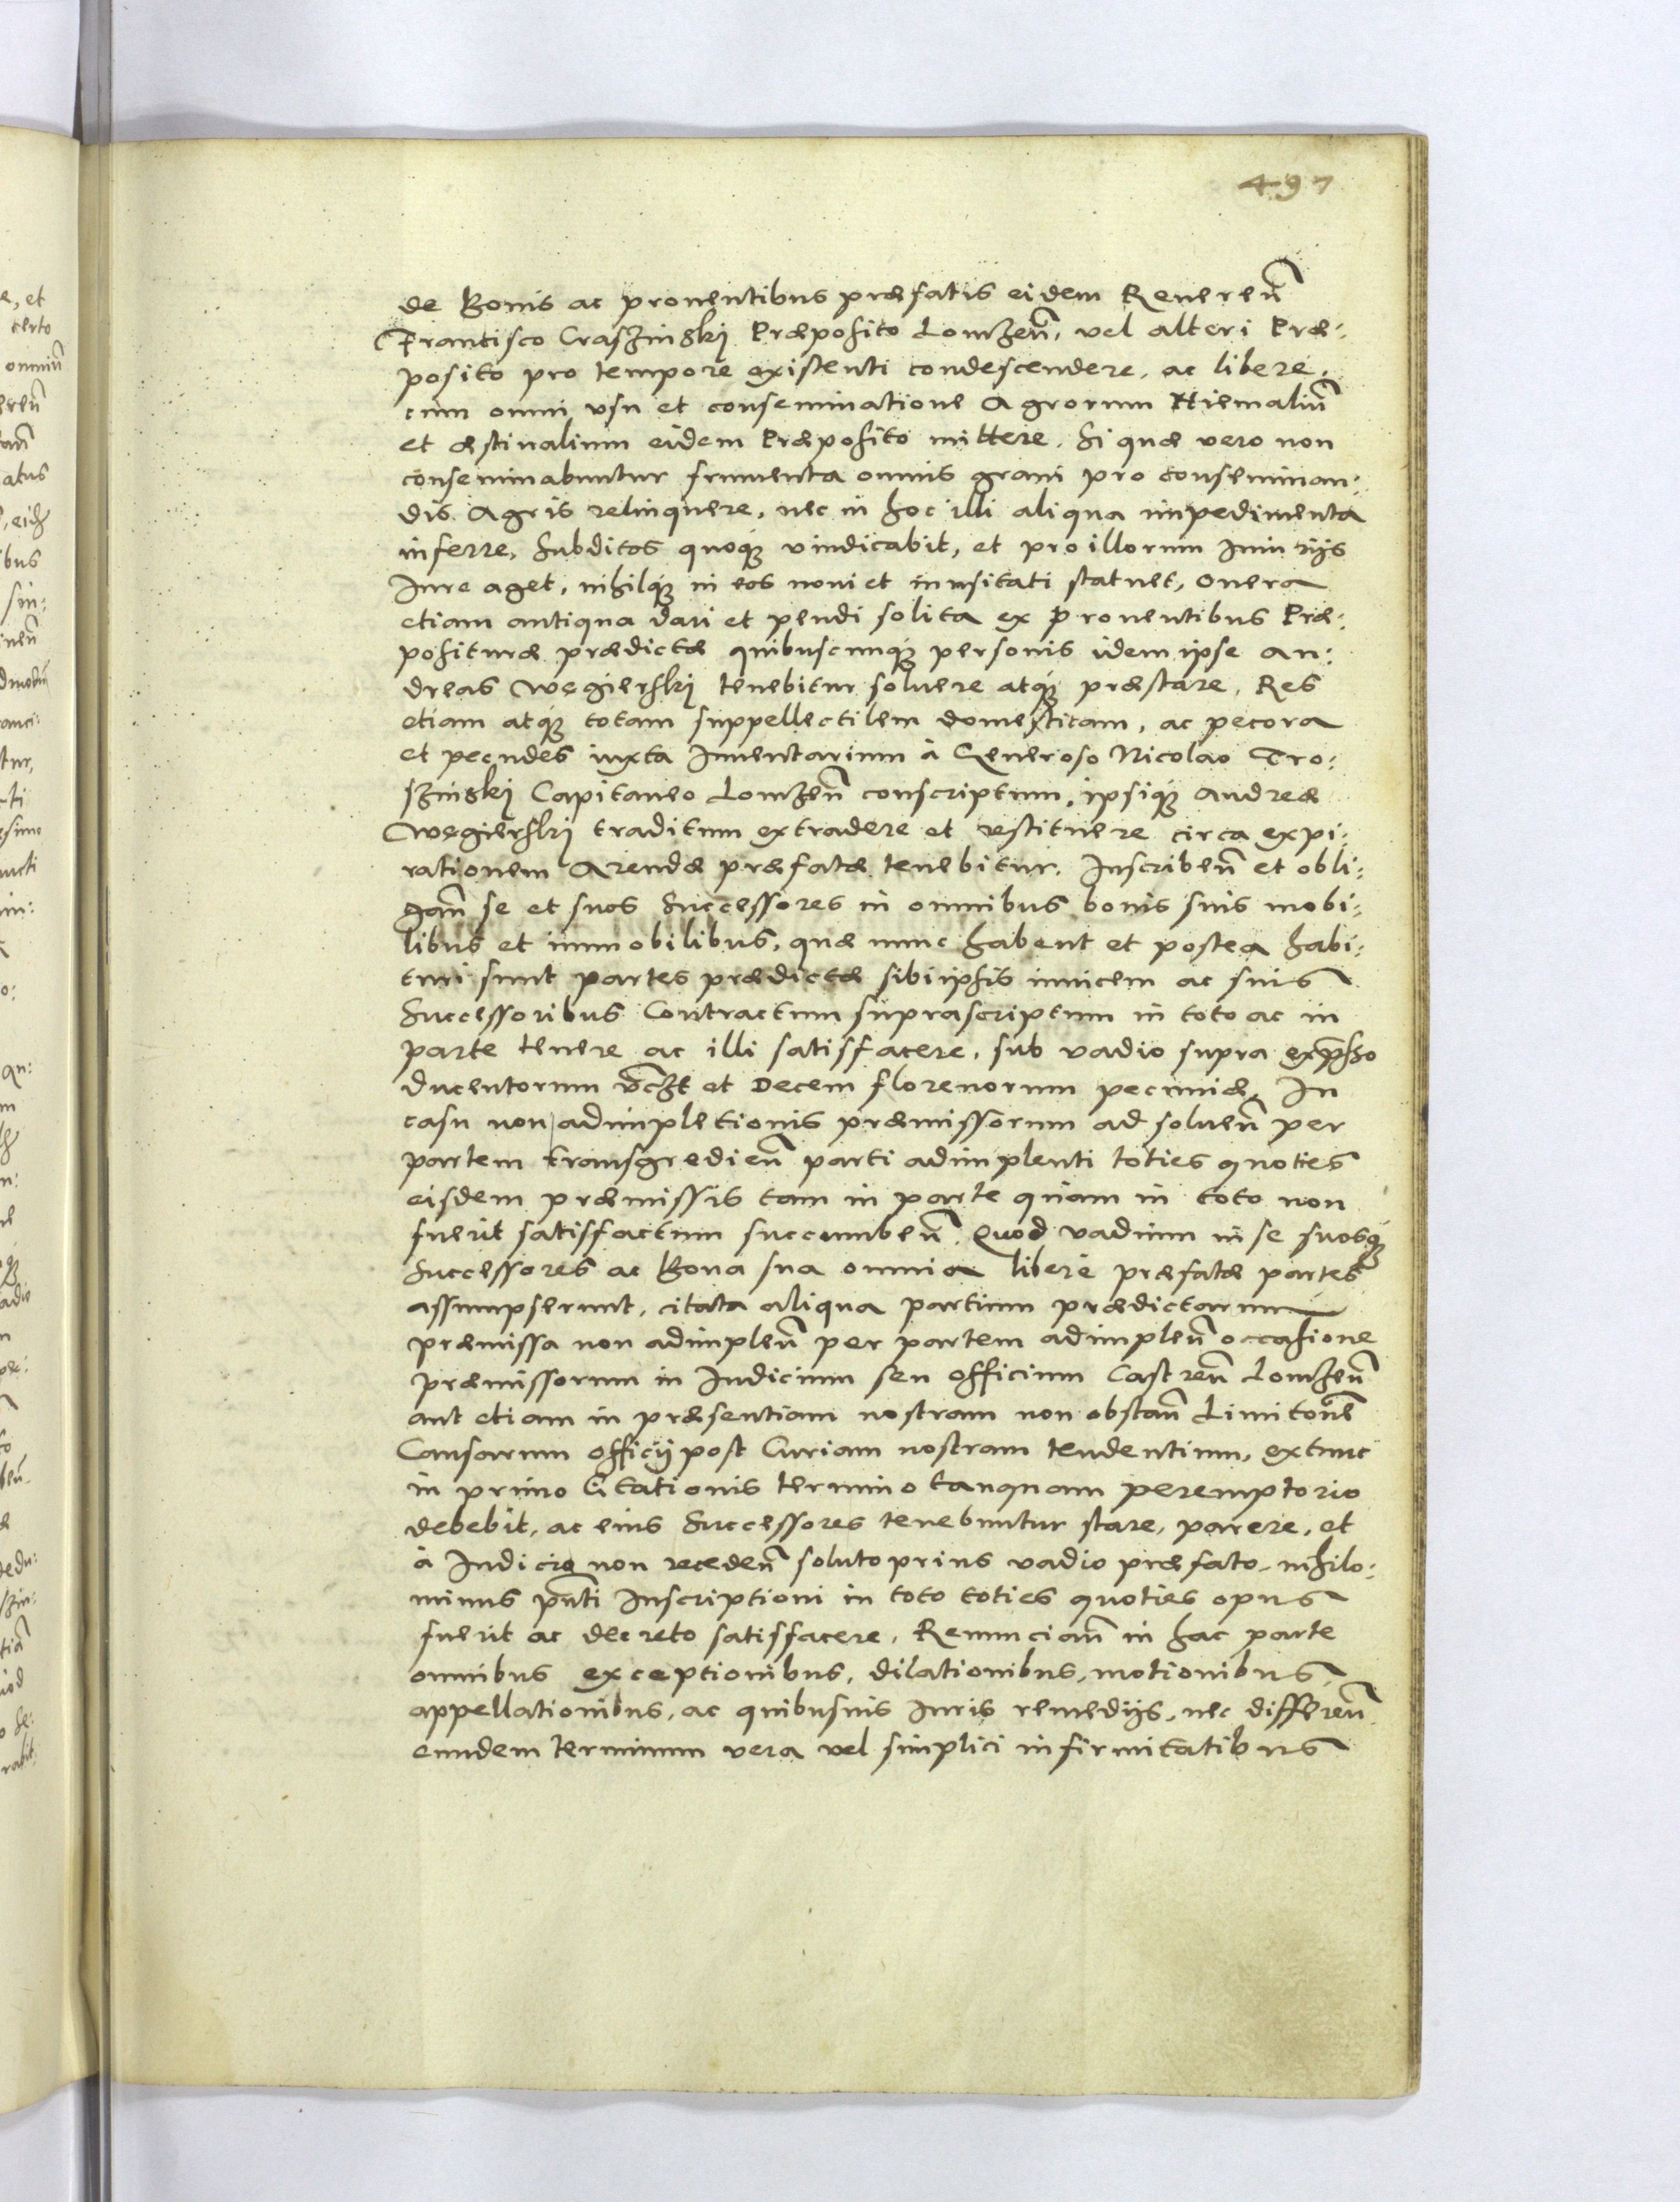 497
de Bonis ac prouentibus præfatis eidem Reueren̄
Francisco Craszinskj Præposito Lomzen̄, vel alteri Præ:
posito pro tempore existenti condescendere, ac libere,
cum omni vsu et conseminatione Agrorum Hiemaliū
et æstiualium eidem Præposito mittere. Si quæ vero non
conseminabuntur frumenta omnis grani pro conseminan:
dis Agris relinquere, nec in hoc illi aliqua impedimenta
inferre, Subditos quoq́ꝫ vindicabit, et pro illorum Iniurijs
Iure aget, nihilq́ꝫ in eos noui et inusitati statuet, Onera
etiam antiqua dari et pendi solita ex prouentibus Præ:
posituræ prædictæ quibuscunq́ꝫ personis idem ipse An:
dreas Węgierskj tenebitur soluere atq́ꝫ præstare, Res
etiam atq́ꝫ totam suppellectilem domesticam, ac pecora
et pecudes iuxta Inuentarium à Generoso Nicolao Tro:
szinskj Capitaneo Lomzen̄ conscriptum, ipsiq́ꝫ Andreæ
Węgierskj traditum extradere et restituere circa expi:
rationem Arendæ præfatæ tenebitur. Inscriben̄ et obli:
gan̄ se et suos Successores in omnibus bonis suis mobi:
libus et immobilibus, quæ nunc habent et postea habi:
turi sunt partes prædictæ sibiipsis inuicem ac suis
Successoribus Contractum suprascriptum in toto ac in
parte tenere ac illi satisfacere, sub vadio supra exp̄sso
ducentorum et Decem florenorum pecuniæ, In
casu non adimpletionis præmissorum ad soluen̄ per
partem transgredien̄ parti adimplenti toties quoties
eisdem præmissis tam in parte quàm in toto non
fuerit satisfactum succumben̄. Quod vadium in se suosq́ꝫ
Successores ac Bona sua omnia liberè præfatæ partes
assumpserunt, citata aliqua partium prædictarum
præmissa non adimplen̄ per partem adimplen̄ occasione
præmissorum in Iudicium seu Officium Castren̄ Lomzen̄
aut etiam in præsentiam nostram non obstan̄ Limitōne
Causarum Officij post Curiam nostram tendentium, extunc
in primo Citationis termino tanquam peremptorio
debebit, ac eius Successores tenebuntur stare, parere, et
à Iudicio non receden̄ soluto prius vadio præfato, nihilo:
minus p̄nti Inscriptioni in toto toties quoties opus
fuerit ac decreto satisfacere, Renuncian̄ in hac parte
omnibus exceptionibus, dilationibus, motionibus,
appellationibus, ac quibusuis Iuris remedijs, nec differen̄
eundem terminum vera vel simplici infirmitatibus